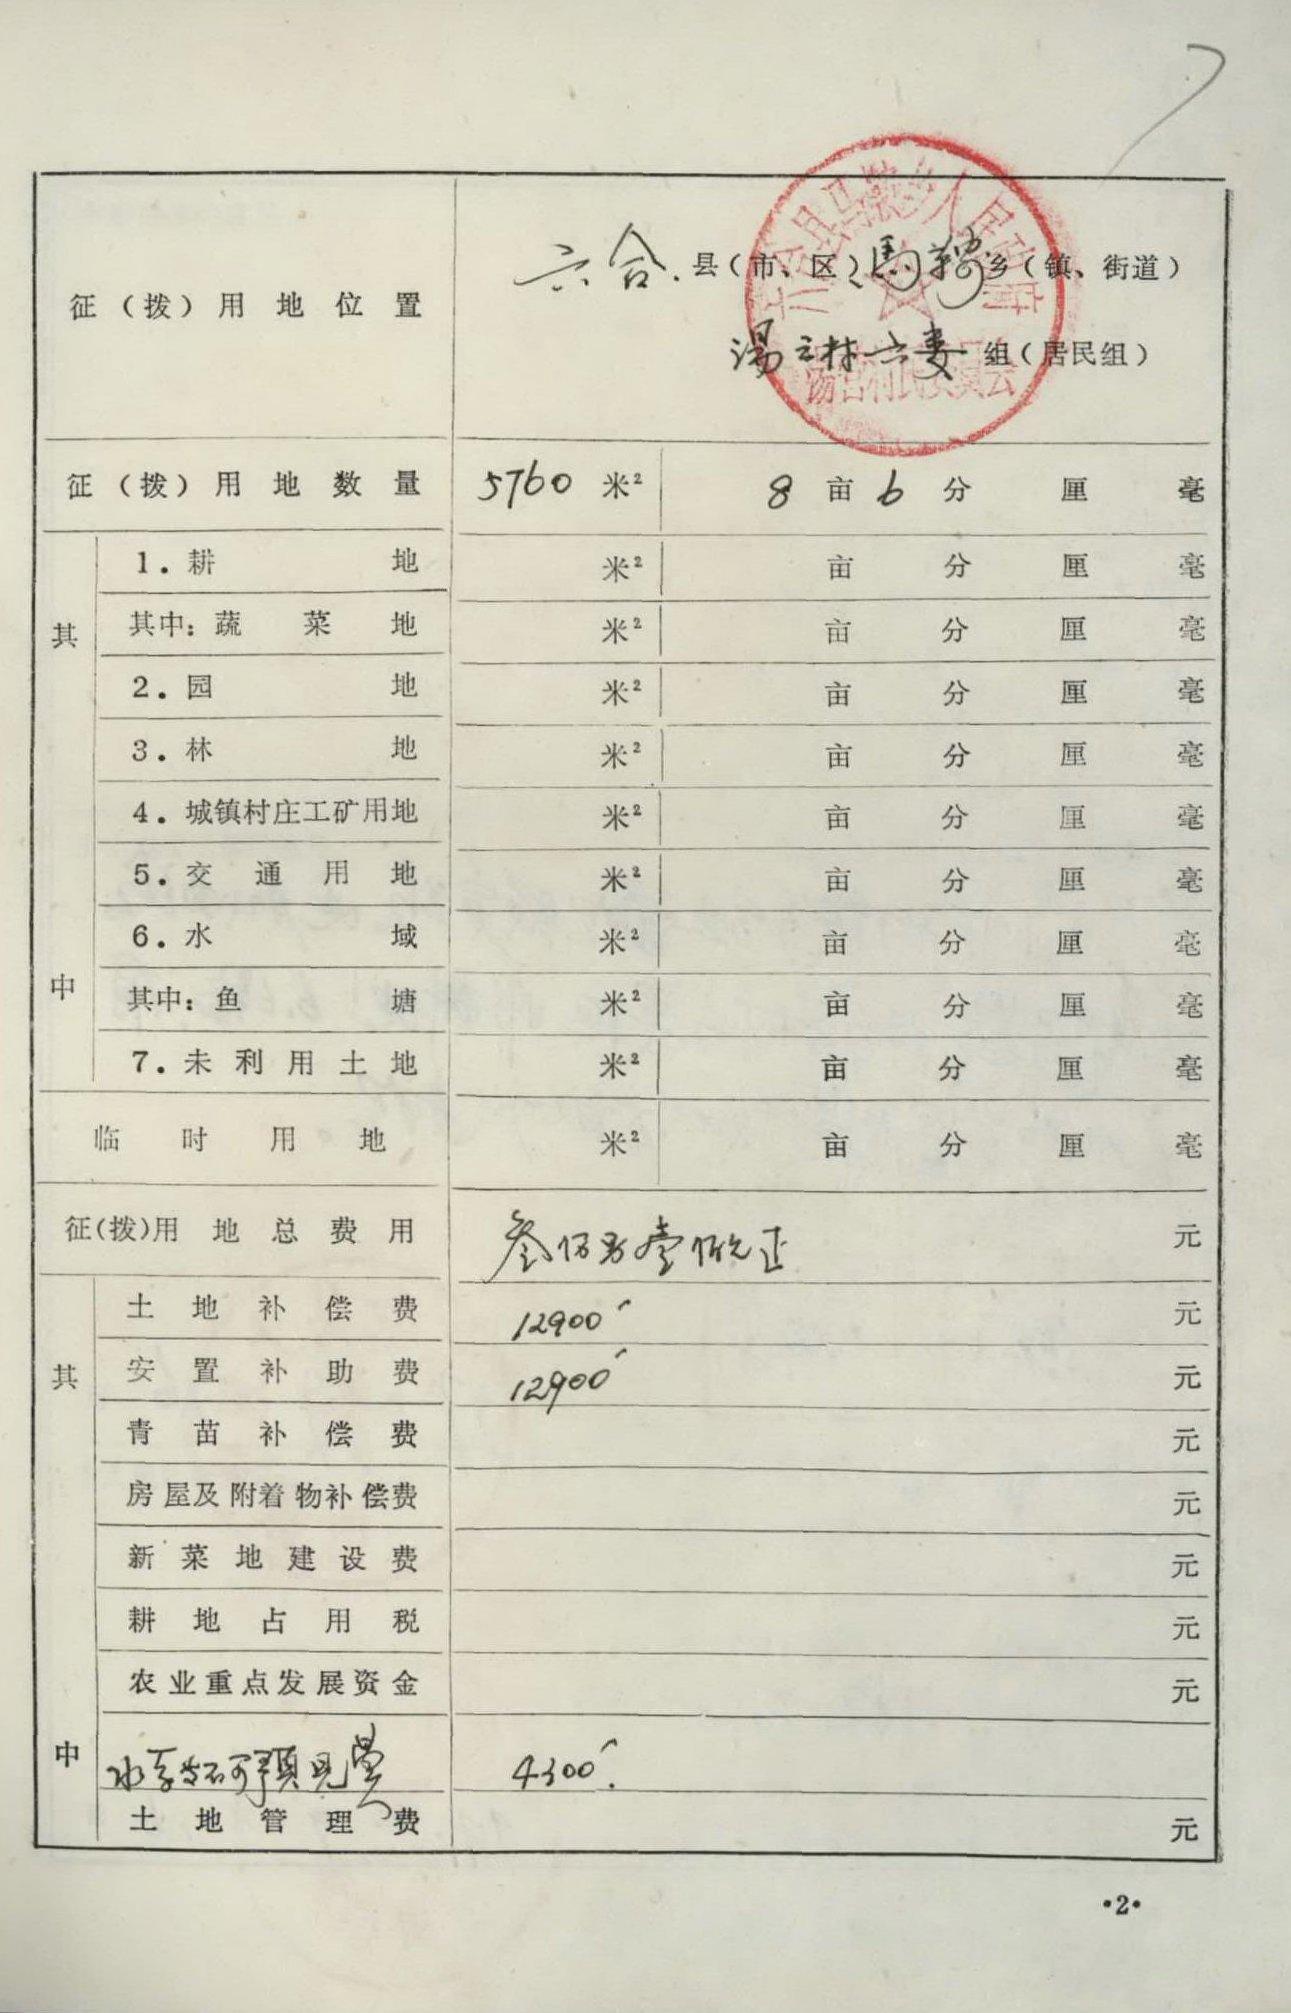 六合县人民政府
征（拨）用地位置 六合.县（市、区）馬鞍乡（镇、街道）
湯 村 六 组（居民组）
村民委员会
征（拨）用地数量 5760 米² 8 亩 6 分 厘 毫
其
中
1.耕地 米² 亩 分 厘 毫
其中：蔬菜地 米² 亩 分 厘 毫
2.园地 米² 亩 分 厘 毫
3.林地 米² 亩 分 厘 毫
4.城镇村庄工矿用地 米² 亩 分 厘 毫
5.交通用地 米² 亩 分 厘 毫
6.水域 米² 亩 分 厘 毫
其中：鱼塘 米² 亩 分 厘 毫
7.未利用土地 米² 亩 分 厘 毫
临时用地 米² 亩 分 厘 毫
征（拨）用地总费用 叁 壹佰元正 元
其
中
土地补偿费 12900 元
安置补助费 12900 元
青苗补偿费 元
房屋及附着物补偿费 元
新菜地建设费 元
耕地占用税 元
农业重点发展资金 元
水 不可预见费 4300
土地管理费 元
•2•